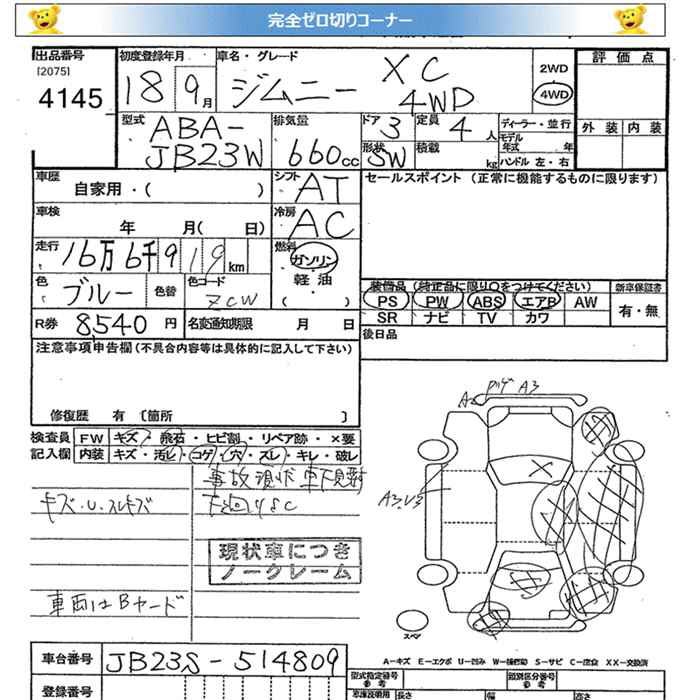 完全ゼロ切りコーナー
出品番号 初度登録年月 車名・グレード 評価点
[2075] 4145 18 9月 ジムニー XC 4WD 2WD 4WD
外装 内装
型式 ABA-JB23W 排気量 660cc ドア 3 定員 4人 ディーラー・並行
モデル年式 年
形状 SW 積載 kg ハンドル 左・右
車歴 自家用・( ) シフト AT セールスポイント (正常に機能するものに限ります)
車検 年 月( 日) 冷房 AC
走行 16万6千919km 燃料 ガソリン
軽油
( )
色 ブルー 色替 色コード ZCW
装備品 (純正品に限り○をつけてください) 新車保証書
PS PW ABS エアB AW 有・無
SR ナビ TV カワ
R券 8540円 名変通知期限 月 日 後日品
注意事項申告欄(不具合内容等は具体的に記入して下さい)
修復歴 有 〔箇所 〕
検査員 FW キズ・飛石・ヒビ割・リペア跡・×要
記入欄 内装 キズ・汚レ・コゲ・穴・スレ・キレ・破レ
事故現状
キズ.U.スレキズ
現状車につき
ノークレーム
車両はBヤード
A3
スペア
A-キズ E-エクボ U-凹み W-補修跡 S-サビ C-腐食 XX-交換済
車台番号 JB23S-514809
型式指定番号 類別区分番号
登録番号 長さ 幅 高さ